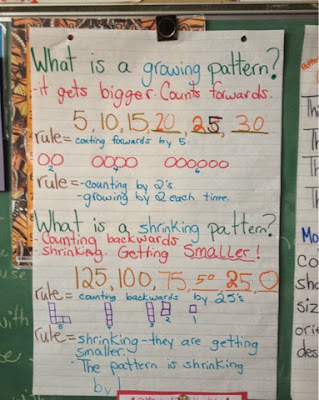 What is a growing pattern?
- it gets bigger. Counts forwards.
5, 10, 15, 20, 25, 30
rule = counting forwards by 5.
2 4 6
rule = - counting by 2's
- growing by 2 each time.
What is a shrinking pattern?
- Counting backwards
- shrinking. Getting Smaller!
125, 100, 75, 50, 25, 0
rule = counting backwards by 25's
6 3 2 1
rule = - shrinking - they are getting
smaller.
- The pattern is shrinking
by 1
Thi
Th
Th
Th
Mo
Co
sha
siz
ori
des
with